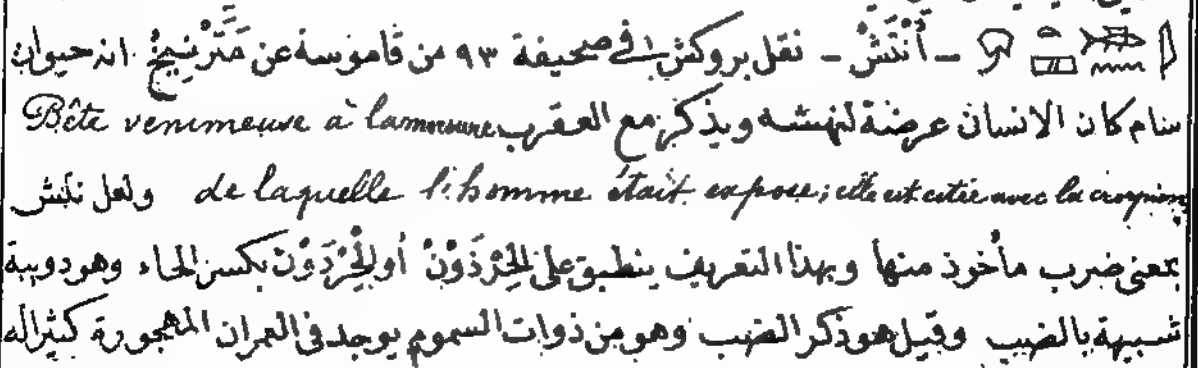 أَنْتَشْ - نقل بروكش فى صحيفة ٩٣ من قاموسه عن مَتَرْنِيخْ انه حيوان
سام كان الانسان عرضة لنهشه ويذكر مع العقرب Bête venimeuse à la morsure
de laquelle l'homme était exposé; elle est citée avec le scorpion ولعل نتش
بمعنى ضرب مأخوذ منها وبهذا التعريف ينطبق على الحِرْذَوْنْ أو الحِرْدَوْنْ بكسر الحاء وهو دويبة
شبيهة بالضب وقيل هو ذكر الضب وهو من ذوات السموم يوجد فى العمران المهجورة كثيرا له